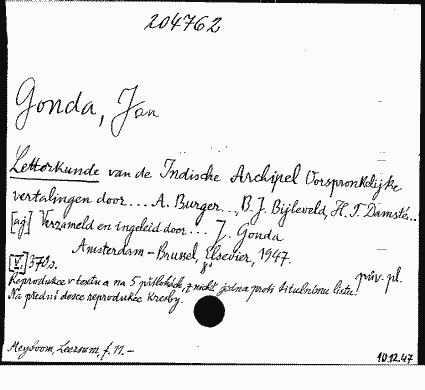 204762
Gonda, Jan
Letterkunde van de Indische Archipel Oorspronkelijke
vertalingen door.... A. Burger... B. J. Bijleveld, H. T. Damsté...
[aj] Verzameld en ingeleid door... J. Gonda
Amsterdam - Brussel, Elsevier, 1947.
[V.] 378 s. 8°
přív. pl.
Reprodukce v textu a na 5 přílohách, z nichž jedna proti titulnímu listu.
Na přední desce reprodukce kresby.
Meyboom, Leersum f. M -
10.12.47